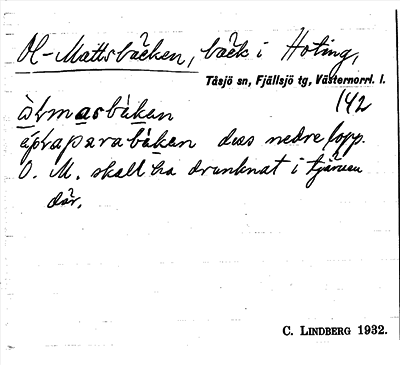 Ol-Mattsbäcken, bäck i Hoting,
Tåsjö sn, Fjällsjö tg, Västernorrl. l.
142
àɫmasbäkan
dess nedre lopp.
O. M. skall ha drunknat i tjärnen
där.
C. LINDBERG 1932.